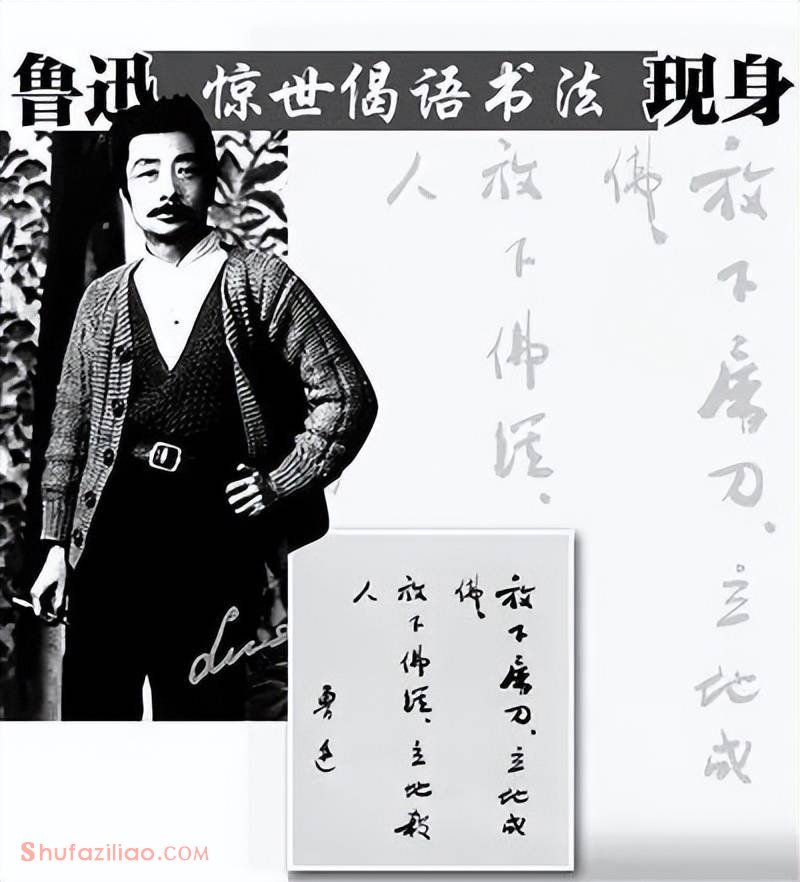 鲁迅 惊世偈语书法 现身
放下屠刀、立地成
佛、
放下佛经、
人
放下屠刀、立地成
佛、
放下佛经、立地殺
人
魯迅
Shufaziliao.com